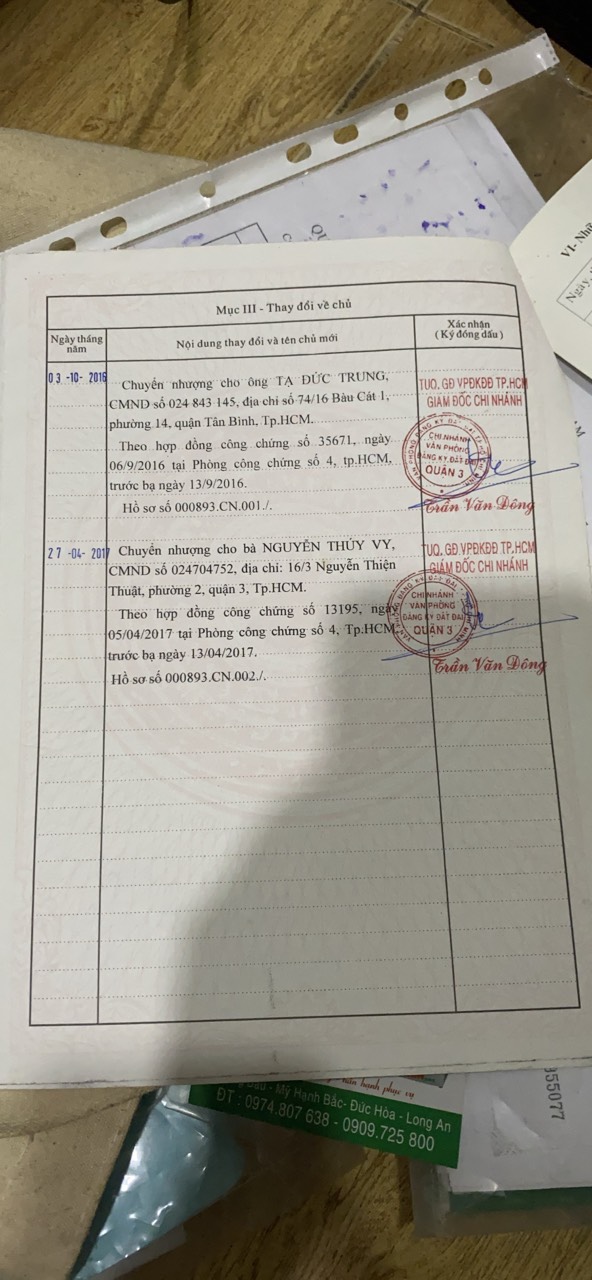 VI- Nhữ
Ngày,
Mục III - Thay đổi về chủ
Ngày tháng năm
Nội dung thay đổi và tên chủ mới
Xác nhận
(Ký đóng dấu)
03 -10- 2016
Chuyển nhượng cho ông TẠ ĐỨC TRUNG,
CMND số 024 843 145, địa chỉ số 74/16 Bàu Cát 1,
phường 14, quận Tân Bình, Tp.HCM.
Theo hợp đồng công chứng số 35671, ngày
06/9/2016 tại Phòng công chứng số 4, tp.HCM,
trước bạ ngày 13/9/2016.
Hồ sơ số 000893.CN.001./.
TUQ. GĐ VPĐKĐĐ TP.HCM
GIÁM ĐỐC CHI NHÁNH
CHI NHÁNH
VĂN PHÒNG
ĐĂNG KÝ ĐẤT ĐAI
QUẬN 3
Trần Văn Dông
27 -04- 2017
Chuyển nhượng cho bà NGUYỄN THÚY VY,
CMND số 024704752, địa chỉ: 16/3 Nguyễn Thiện
Thuật, phường 2, quận 3, Tp.HCM.
Theo hợp đồng công chứng số 13195, ngày
05/04/2017 tại Phòng công chứng số 4, Tp.HCM,
trước bạ ngày 13/04/2017.
Hồ sơ số 000893.CN.002./.
TUQ. GĐ VPĐKĐĐ TP.HCM
GIÁM ĐỐC CHI NHÁNH
CHI NHÁNH
VĂN PHÒNG
ĐĂNG KÝ ĐẤT ĐAI
QUẬN 3
Trần Văn Dông
hân hạnh phục vụ
- Mỹ Hạnh Bắc- Đức Hòa - Long An
ĐT : 0974.807 638 - 0909.725 800
55077